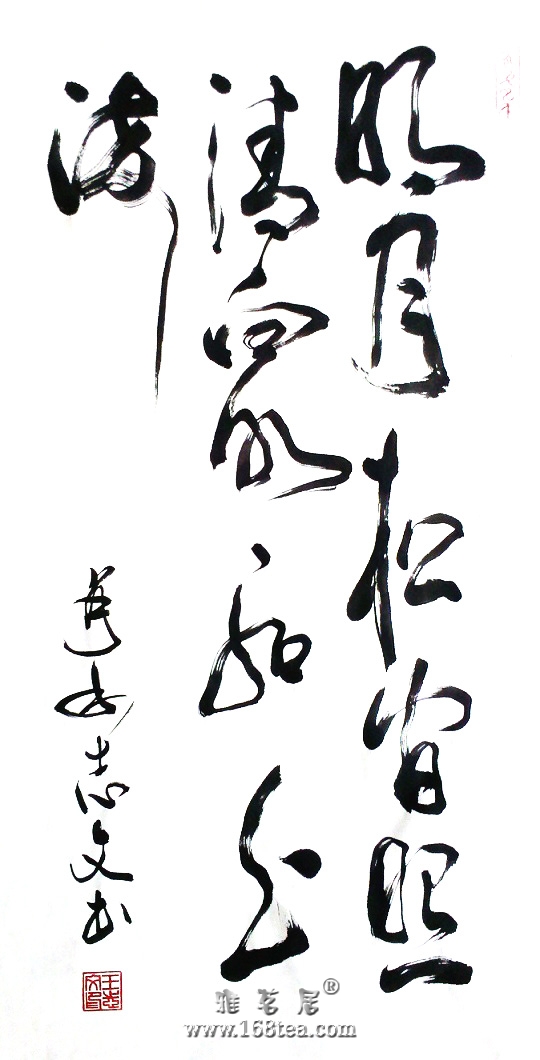 明月松間照
清泉石上
流
志文书
雅茗居®
www.168tea.com